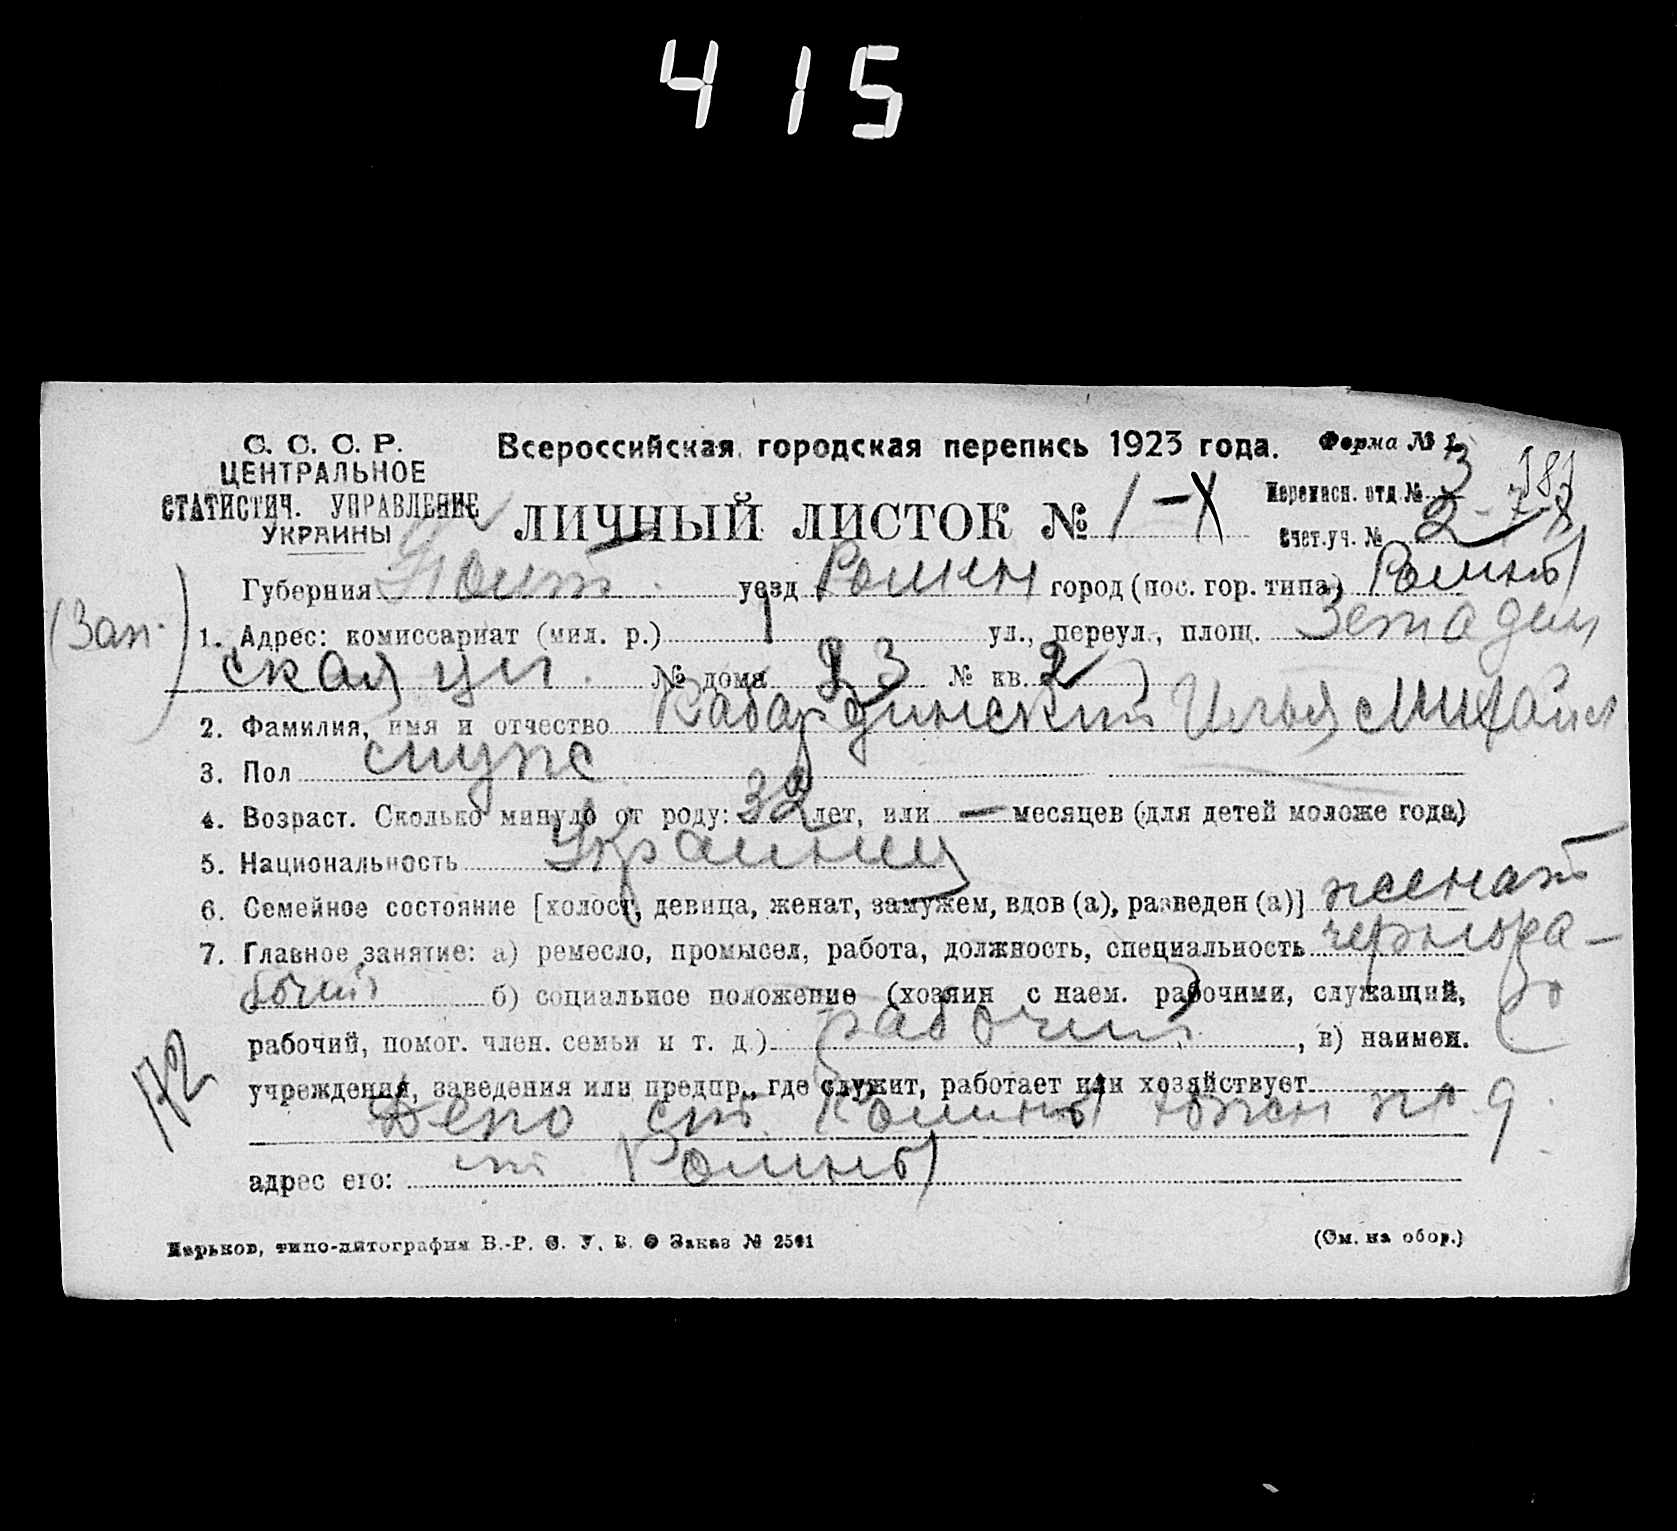 415
С. С. С. Р.
ЦЕНТРАЛЬНОЕ
СТАТИСТИЧ. УПРАВЛЕНИЕ
УКРАИНЫ
Всероссийская городская перепись 1923 года.
Форма № 1.
ЛИЧНЫЙ ЛИСТОК № 1
Переписн. отд. № 3
Счет. уч. № 2
Губерния Полт. уезд Ромен город (пос. гор. типа) Ромны
(Зап.) 1. Адрес: комиссариат (мил. р.) 1 ул., переул., площ.
ская ул. № дома 23 № кв. 2
2. Фамилия, имя и отчество Кабардинский Илья Михайл
3. Пол муж
4. Возраст. Сколько минуло от роду: 32 лет, или — месяцев (для детей моложе года)
5. Национальность Украинец
6. Семейное состояние [холост, девица, женат, замужем, вдов (а), разведен (а)] женат
7. Главное занятие: а) ремесло, промысел, работа, должность, специальность чернора-
бочий б) социальное положение (хозяин с наем. рабочими, служащий,
рабочий, помог. член. семьи и т. д.) рабочий, в) наимен.
учреждения, заведения или предпр., где служит, работает или хозяйствует
Депо ст. Ромны
адрес его: ст Ромны
Харьков, типо-литография Заказ №
(См. на обор.)